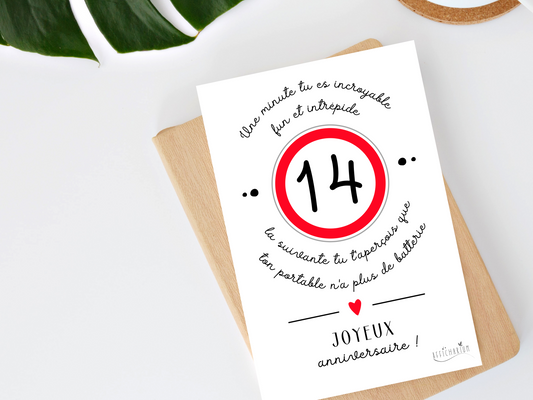 Une minute tu es incroyable
fun et intrépide
14
la suivante tu t'aperçois que
ton portable n'a plus de batterie
JOYEUX
anniversaire !
AFFICHARIUM